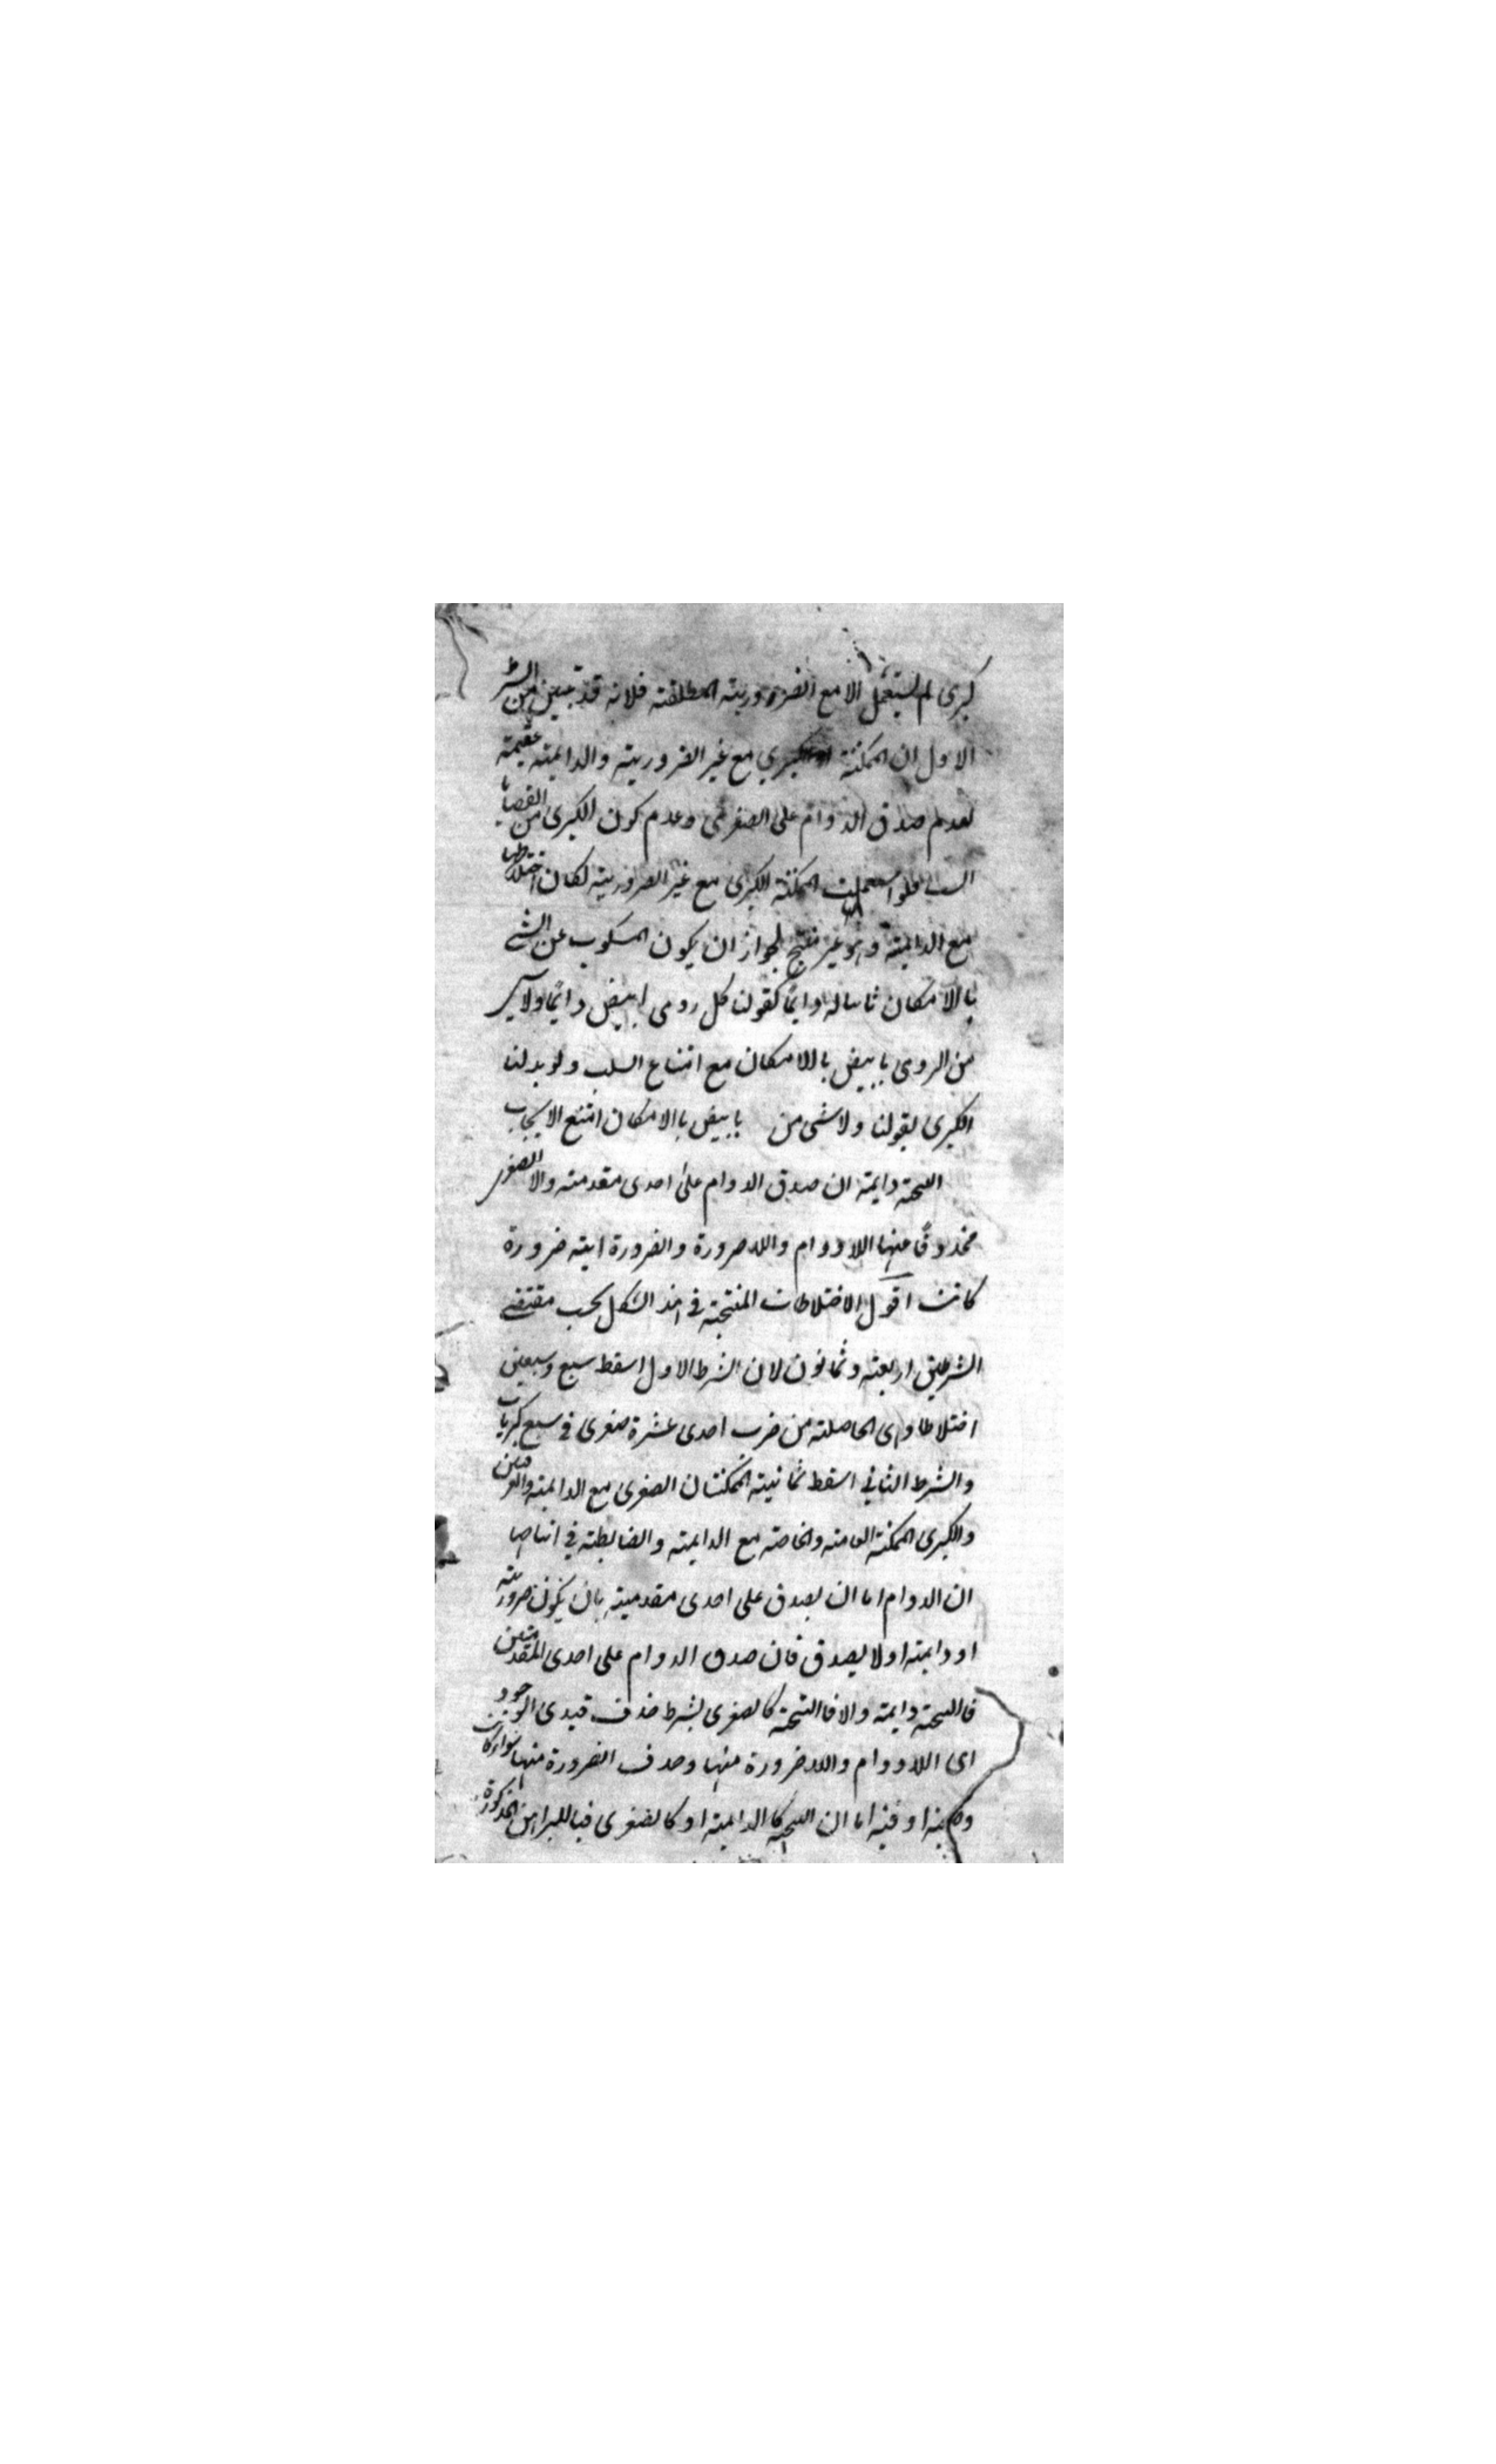 كبرى لم يستعمل الا مع الضرورية المطلقة فلانه قد تبين من الشرط
الاول ان الممكنة الكبرى مع غير الضرورية والدايمة عقيمة
لعدم صدق الدوام على الصغرى وعدم كون الكبرى من القضايا
الست فلو استعملت الممكنة الكبرى مع غير الضرورية لكان اختلاطها
مع الدايمة وهو غير منتج لجواز ان يكون المسلوب عن الشي
بالامكان ثابتا له دايما كقولنا كل رومى ابيض دايما ولا شى
من الرومى بابيض بالامكان مع امتناع السلب ولو بدلنا
الكبرى بقولنا ولا شى من بابيض بالامكان امتنع الايجاب
النتيجة دايمة ان صدق الدوام على احدى مقدمته والا الصغرى
محذوفا عنها اللادوام واللاضرورة والضرورة اية ضرورة
كانت اقول الاختلاطات المنتجة فى هذا الشكل بحسب مقتضى
الشرطين اربعة وثمانون لان الشرط الاول اسقط سبع وسبعين
اختلاطا وهى الحاصلة من ضرب احدى عشرة صغرى فى سبع كبريات
والشرط الثانى اسقط ثمانية الممكنتان الصغرى مع الدايمة والعرفيتين
والكبرى الممكنة العامة والخاصة مع الدايمة والضابطة فى انتاجها
ان الدوام اما ان يصدق على احدى مقدميته بان يكون ضرورية
او دايمة او لا يصدق فان صدق الدوام على احدى المقدمتين
فالنتيجة دايمة والا فالنتيجة كالصغرى بشرط حذف قيدى الوجود
اى اللادوام واللاضرورة منها وحذف الضرورة منها سواء كانت
وصفية او وقتية اما ان النتيجة كالدايمة او كالصغرى فبالبراهين المذكورة